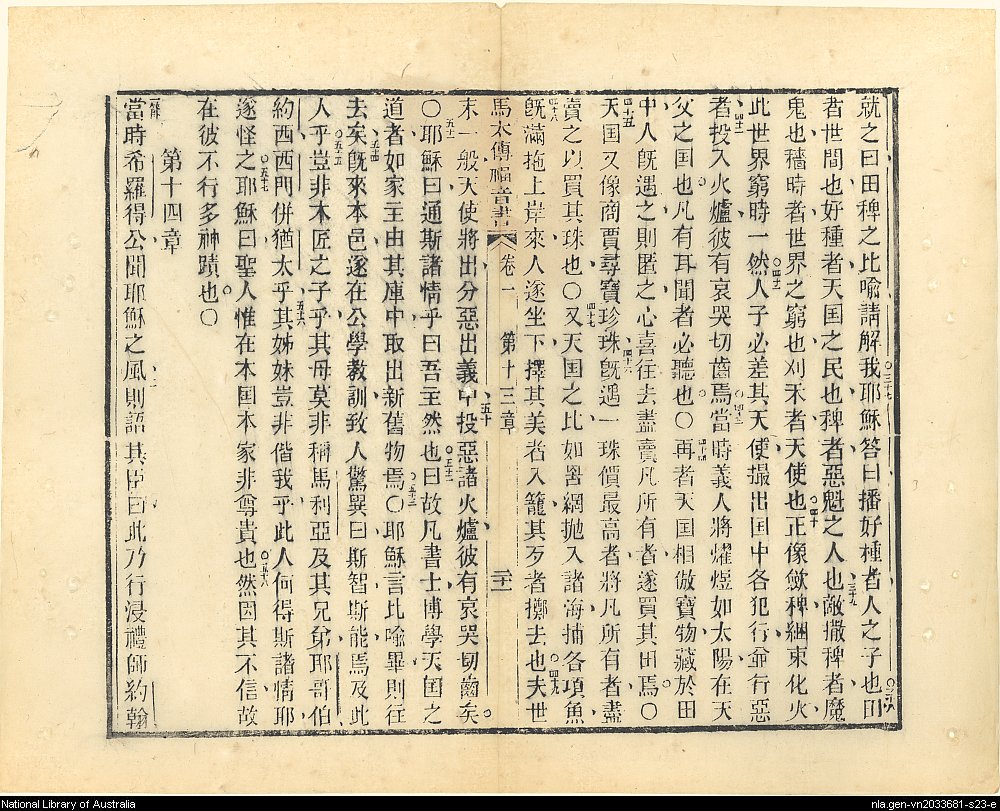 就之曰田稗之比喩請解我○三十七耶穌答曰播好種者人之子也○三十八田
者世間也好種者天国之民也稗者惡魁之人也三十九敵撒稗者魔
鬼也穡時者世界之窮也刈禾者天使也○四十正像歛稗綑束化火
此世界窮時一然○四十一人子必差其天使撮出国中各犯行并行惡
者四十二投入火爐彼有哀哭切齒焉○四十三當時義人將燿煜如太陽在天
父之国也凡有耳聞者必聽也○四十四再者天国相倣寶物藏於田
中人旣遇之則匿之心喜徃去盡賣凡所有者遂買其田焉○
四十五天国又像商賈尋寶珍珠四十六旣遇一珠價最高者將凡所有者盡
賣之以買其珠也○四十七又天国之比如罟網抛入諸海捕各項魚
四十八旣滿拖上岸來人遂坐下擇其美者入籠其歹者擲去也○四十九夫世
馬太傳福音書 卷一 第十三章 二十一
末一般天使將出分惡出義中五十投惡諸火爐彼有哀哭切齒矣
○五十一耶穌曰通斯諸情乎曰吾主然也○五十二曰故凡書士博學天国之
道者如家主由其庫中取出新舊物焉○五十三耶穌言比喩畢則徃
去矣五十四旣來本邑遂在公學教訓致人驚異曰斯智斯能焉及此
人乎○五十五豈非木匠之子乎其母莫非稱馬利亞及其兄弟耶哥伯
約西西門併猶太乎五十六其姊妹豈非偕我乎此人何得斯諸情耶
遂怪之○五十七耶穌曰聖人惟在本国本家非尊貴也○五十八然因其不信故
在彼不行多神蹟也○
第十四章
一節當時希羅得公聞耶穌之風二則語其臣曰此乃行浸禮師約翰
National Library of Australia
nla.gen-vn2033681-s23-e